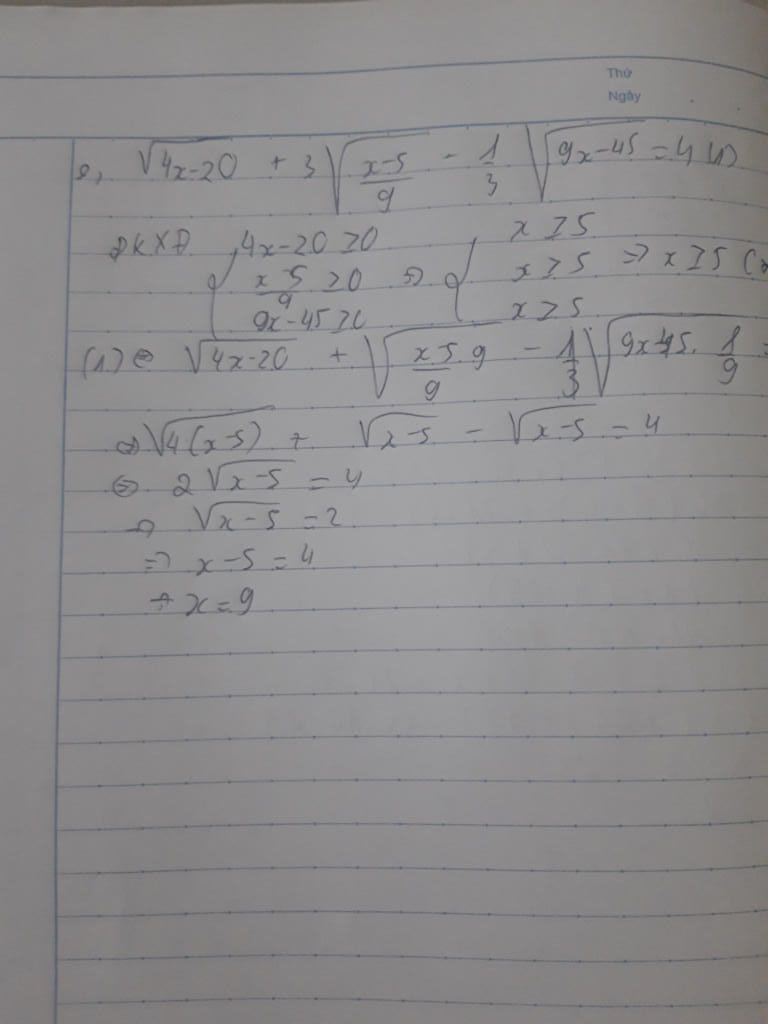 Thứ
Ngày
e, √(4x-20) + 3√((x-5)/9) - 1/3 √(9x-45) = 4 (1)
ĐKXĐ { 4x-20 ≥ 0 ⇒ { x ≥ 5
x-5/9 ≥ 0 x ≥ 5 ⇒ x ≥ 5
9x-45 ≥ 0 x ≥ 5
(1) ⇔ √(4x-20) + √((x-5)/9 . 9) - 1/3 √(9x-45 . 1/9 =
⇔ √(4(x-5)) + √(x-5) - √(x-5) = 4
⇔ 2√(x-5) = 4
⇒ √(x-5) = 2
⇒ x-5 = 4
→ x = 9